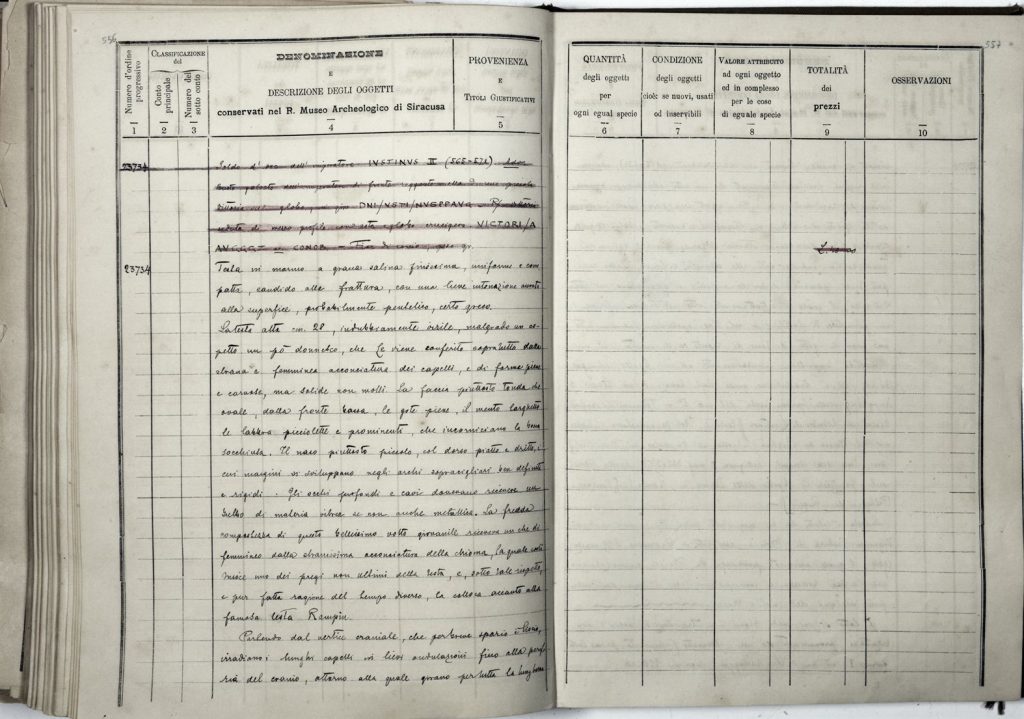 556
Numero d'ordine progressivo
CLASSIFICAZIONE del
Conto principale
Numero del sotto conto
DENOMINAZIONE
E
DESCRIZIONE DEGLI OGGETTI
conservati nel R. Museo Archeologico di Siracusa
PROVENIENZA
E
TITOLI GIUSTIFICATIVI
1
2
3
4
5
23734
Soldo d'oro dell'imperatore IVSTINVS II
busto dell'imperatore di fronte
Vittoria globo, in giro DNI/VSTI/NVSPPAVG
VICTORI/A
AVGGG CONOB
23734
Testa in marmo a grana salina finissima, uniforme e com
patta, candido alla frattura, con una lieve intonazione
alla superfice, probabilmente pentelico, certo greco.
La testa alta cm. 28, indubbiamente virile, malgrado un as-
petto un pò donnesco, che le viene conferito sopratutto dalla
strana e femminea acconciatura dei capelli, e di forme piene
e carnose, ma solide non molli. La faccia piuttosto tonda che
ovale, dalla fronte bassa, le gote piene, il mento larghetto
le labbra picciolette e prominenti, che incorniciano la bocca
socchiusa. Il naso piuttosto piccolo, col dorso piatto e dritto, i
cui margini si sviluppano negli archi sopracigliari ben definiti
e rigidi. Gli occhi profondi e cavi dovevano ricevere un
bulbo di materia vitrea se non anche metallica. La fredda
compostezza di questo bellissimo volto giovanile riceveva un che di
femmineo dalla stranissima acconciatura della chioma, la quale costi
tuisce uno dei pregi non ultimi della testa, e, sotto tale rispetto,
e pur fatta ragione del tempo diverso, la colloca accanto alla
famosa testa Rampin.
Partendo dal vertice craniale, che per breve spazio è liscio,
irradiano i lunghi capelli in lievi ondulazioni fino alla perife
ria del cranio, attorno alla quale girano per tutta la lunghezza
557
QUANTITÀ
degli oggetti
per
ogni egual specie
CONDIZIONE
degli oggetti
cioè: se nuovi, usati
od inservibili
VALORE ATTRIBUITO
ad ogni oggetto
od in complesso
per le cose
di eguale specie
TOTALITÀ
dei
prezzi
OSSERVAZIONI
6
7
8
9
10